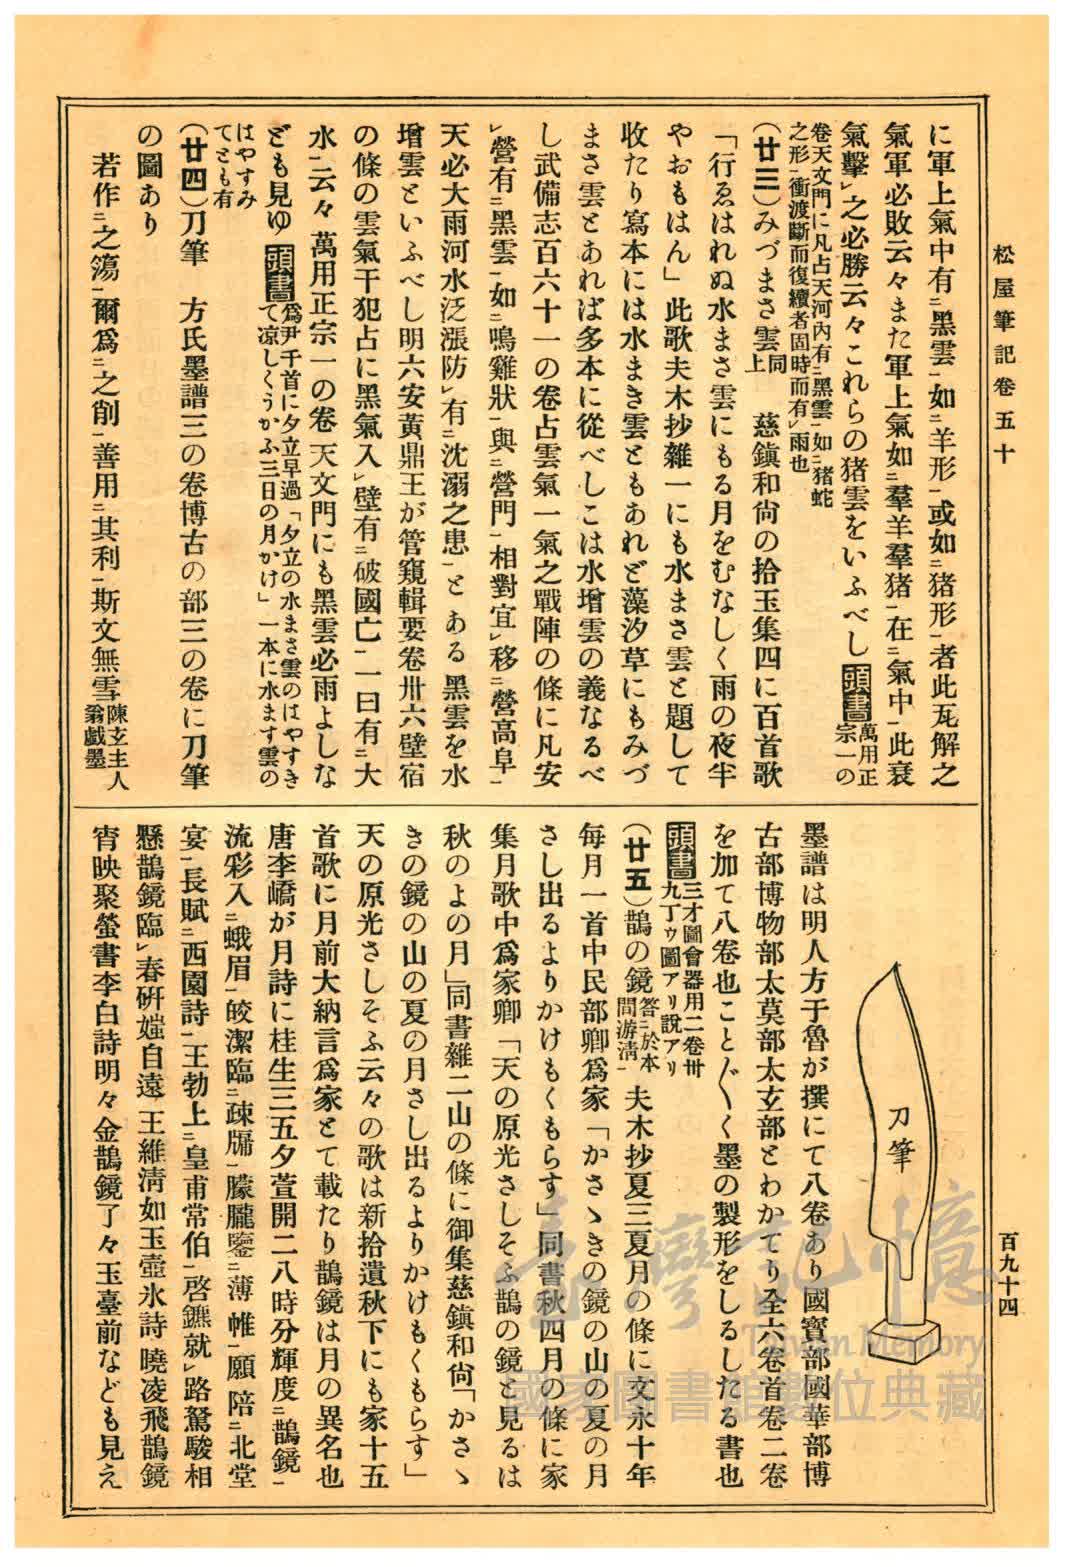 松屋筆記卷五十
百九十四
に軍上氣中有ニ黑雲一如ニ羊形一或如ニ猪形一者此瓦解之
氣軍必敗云々また軍上氣如ニ羣羊羣猪一在ニ氣中一此衰
氣擊レ之必勝云々これらの猪雲をいふべし頭書萬用正宗一の
卷天文門に凡占天河內有ニ黑雲一如ニ猪蛇
之形一衝渡斷而復續者固時而有レ雨也
(廿三)みづまさ雲同上　慈鎭和尙の拾玉集四に百首歌
「行ゑはれぬ水まさ雲にもる月をむなしく雨の夜半
やおもはん」此歌夫木抄雜一にも水まさ雲と題して
收たり寫本には水まき雲ともあれど藻汐草にもみづ
まさ雲とあれば多本に從べしこは水增雲の義なるべ
し武備志百六十一の卷占雲氣一氣之戰陣の條に凡安
レ營有ニ黑雲一如ニ鳴雞狀一與ニ營門一相對宜レ移ニ營高阜一
天必大雨河水泛漲防レ有ニ沈溺之患一とある黑雲を水
增雲といふべし明六安黃鼎王が管窺輯要卷卅六壁宿
の條の雲氣干犯占に黑氣入レ壁有ニ破國亡一一曰有ニ大
水ニ云々萬用正宗一の卷天文門にも黑雲必雨よしな
ども見ゆ　頭書爲尹千首に夕立早過「夕立の水まさ雲のはやすき
て凉しくうかふ三日の月かけ」一本に水ます雲の
はやすみ
てとも有
(廿四)刀筆　方氏墨譜三の卷博古の部三の卷に刀筆
の圖あり
若作ニ之簜一爾爲ニ之削一善用ニ其利一斯文無雪陳玄主人
翁戱墨
刀筆
墨譜は明人方于魯が撰にて八卷あり國寳部國華部博
古部博物部太莫部太玄部とわかてり全六卷首卷二卷
を加て八卷也こと〴〵く墨の製形をしるしたる書也
頭書三才圖會器用二卷卅
九丁ゥ圖アリ說アリ
(廿五)鵲の鏡答ニ於本
問游淸一　夫木抄夏三夏月の條に文永十年
每月一首中民部卿爲家「かさゝきの鏡の山の夏の月
さし出るよりかけもくもらす」同書秋四月の條に家
集月歌中爲家卿「天の原光さしそふ鵲の鏡と見るは
秋のよの月」同書雜二山の條に御集慈鎭和尙「かさゝ
きの鏡の山の夏の月さし出るよりかけもくもらす」
天の原光さしそふ云々の歌は新拾遺秋下にも家十五
首歌に月前大納言爲家とて載たり鵲鏡は月の異名也
唐李嶠が月詩に桂生三五夕蓂開二八時分輝度ニ鵲鏡一
流彩入ニ蛾眉一皎潔臨ニ疎牖一朦朧鑒ニ薄帷一願陪ニ北堂
宴一長賦ニ西園詩一王勃上ニ皇甫常伯一啓鑣就レ路駑駿相
懸鵲鏡臨レ春硏媸自遠王維淸如玉壺氷詩曉凌飛鵲鏡
宵映聚螢書李白詩明々金鵲鏡了々玉臺前なども見え
臺灣記憶
Taiwan Memory
國家圖書館數位典藏